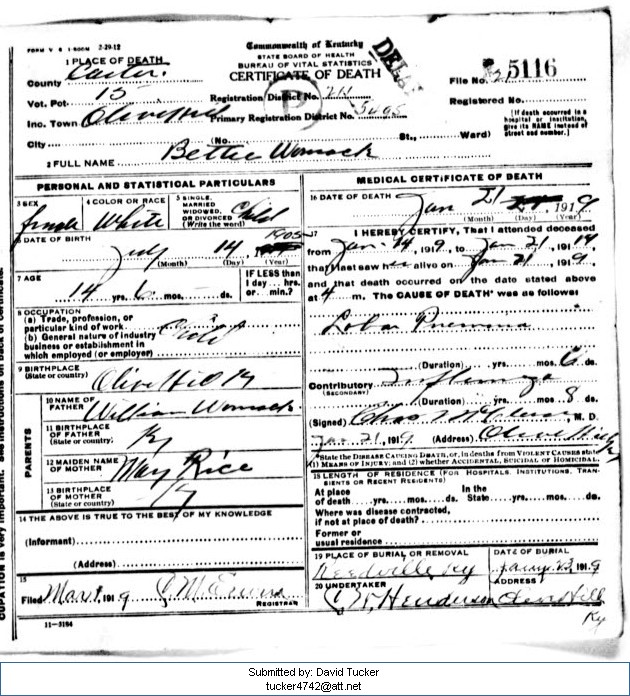 FORM V. S. 1-500M 2-29-12
Commonwealth of Kentucky
STATE BOARD OF HEALTH
BUREAU OF VITAL STATISTICS
CERTIFICATE OF DEATH
1 PLACE OF DEATH
County Carter
File No. 5116
Vot. Pct. 15
Registration District No. 211
Registered No.
Inc. Town Olive Hill
Primary Registration District No. 5095
[If death occurred in a hospital or institution, give its NAME instead of street and number.]
City (No. St., Ward)
2 FULL NAME Bettie Womack
PERSONAL AND STATISTICAL PARTICULARS
3 SEX
female
4 COLOR OR RACE
White
5 SINGLE, MARRIED WIDOWED, OR DIVORCED (Write the word)
Child
6 DATE OF BIRTH
July 14 1905
(Month) (Day) (Year)
7 AGE
14 yrs. 6 mos. ds.
IF LESS than 1 day... hrs. or... min.?
8 OCCUPATION
(a) Trade, profession, or particular kind of work
(b) General nature of industry business or establishment in which employed (or employer)
Child
9 BIRTHPLACE
(State or country)
Olive Hill Ky
PARENTS
10 NAME OF FATHER William Womack
11 BIRTHPLACE OF FATHER
(State or country) Ky
12 MAIDEN NAME OF MOTHER May Rice
13 BIRTHPLACE OF MOTHER
(State or country) Ky
14 THE ABOVE IS TRUE TO THE BEST OF MY KNOWLEDGE
(Informant)
(Address)
15
Filed Mar 1, 1919
REGISTRAR
11-3184
MEDICAL CERTIFICATE OF DEATH
16 DATE OF DEATH
Jan 21 1919
(Month) (Day) (Year)
17 I HEREBY CERTIFY, That I attended deceased
from Jan. 14, 1919, to Jan 21, 1919
that I last saw her alive on Jan 21, 1919,
and that death occurred on the date stated above
at 4 m. The CAUSE OF DEATH* was as follows
Lobar Pneumonia
(Duration) yrs. mos. 6 ds.
Contributory Influenza
(SECONDARY)
(Duration) yrs. mos. 8 ds.
(Signed) Chas, M. D.
Jan. 21, 1919 (Address) Olive Hill Ky
*State the DISEASE CAUSING DEATH, or, in deaths from VIOLENT CAUSES state (1) MEANS OF INJURY; and (2) whether ACCIDENTAL, SUICIDAL OR HOMICIDAL.
18 LENGTH OF RESIDENCE (FOR HOSPITALS, INSTITUTIONS, TRANSIENTS OR RECENT RESIDENTS)
At place of death yrs. mos. ds. In the State yrs. mos. ds.
Where was disease contracted, if not at place of death?
Former or usual residence
19 PLACE OF BURIAL OR REMOVAL
Ky
DATE OF BURIAL
1919
20 UNDERTAKER
Henderson
ADDRESS
Olive Hill
Ky
Submitted by: David Tucker
tucker4742@att.net